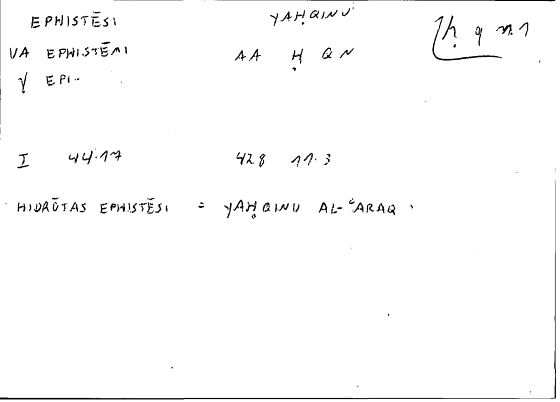 EPHISTĒSI YAḤQINU
ḥ q n.1
VA EPHISTĒMI AA Ḥ Q N
√ EPI..
I 44.17 428 11.3
HIDRŌTAS EPHISTĒSI = YAḤQINU AL-ʿARAQ .